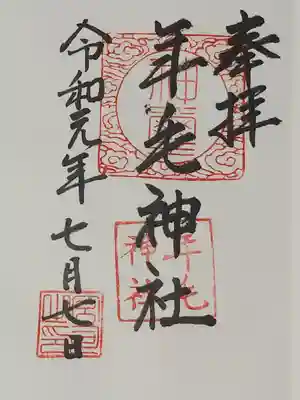 奉拝
年毛神社
令和元年七月七日